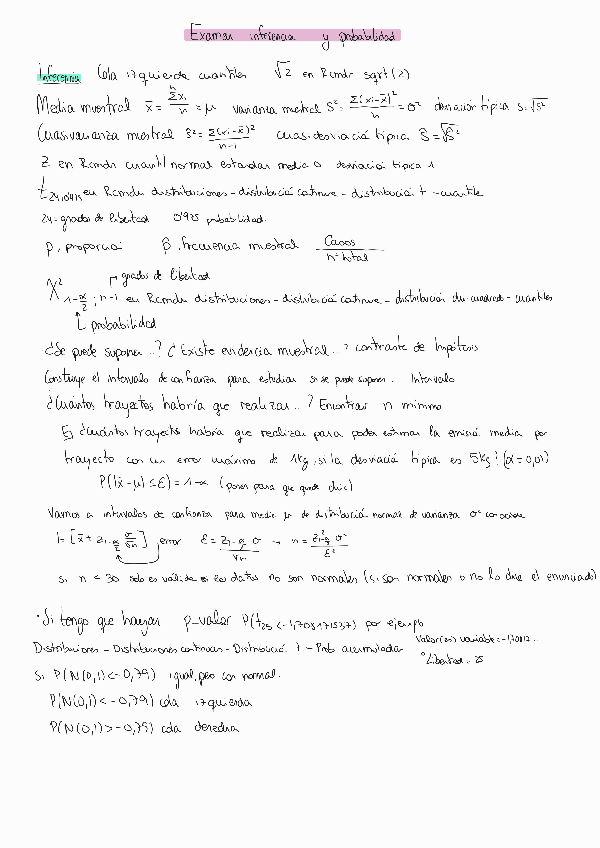 Examen inferencia y probabilidad
Inferencia Cola izquierda cuantiles √2 en Rcmdr sqrt(2)
Media muestral x̄ = Σxi/n = μ varianza mestral S² = Σ(xi-x̄)²/n = σ² desviación típica s = √s²
Cuasivarianza muestral Ŝ² = Σ(xi-x̄)²/n-1 cuasidesviació típica Ŝ = √Ŝ²
Z en Rcmdr cuantil normal estandar media 0 desviació típica 1
en Rcmdr distribuciones - distribució continue - distribució t - cuantile
24 = grados de libertad 0'975 probabilidad.
p, proporció p̂, frecuencia muestral Casos/nº total
grados de libertad
X² 1-α/2 ; n-1 en Rcmdr distribuciones - distribució continue - distribución chi-cuadrado - cuantiles
probabilidad
¿Se puede suponer..? ¿Existe evidencia muestral..? contraste de hipótesis
Construye el intervalo de confianza para estudiar si se puede suponer. Intervalo
¿Cuántos trayectos habría que realizar..? Encontrar n mínimo
Ej ¿Cuántos trayects habría que realizar para poder estimar la emisió media por
trayecto con un error máximo de 1kg, si la desviació típica es 5kg? (α=0,01)
P(|x̄-μ| ≤ ε) = 1-α
Vamos a intervalos de confianza para media μ de distribució normal de varianza σ² conocida
I = [x̄ ± z1-α/2 σ/√n] error ε = z1-α/2 σ/√n → n = z²1-α/2 σ²/ε²
si n < 30 solo es válida si los datos no son normales (si son normales o no lo dice el enunciado)
· Si tengo que hayar p-valor P(t25 < -1,708171537) por ejemplo
Distribuciones - Distribuciones continuas - Distribució t - Prob. acumuladas Valor(es) variable = -1,70812..
ºLibertad = 25
Si P(N(0,1) < -0,79) igual, pero con normal.
P(N(0,1) < -0,79) cola izquierda
P(N(0,1) > -0,79) cola derecha